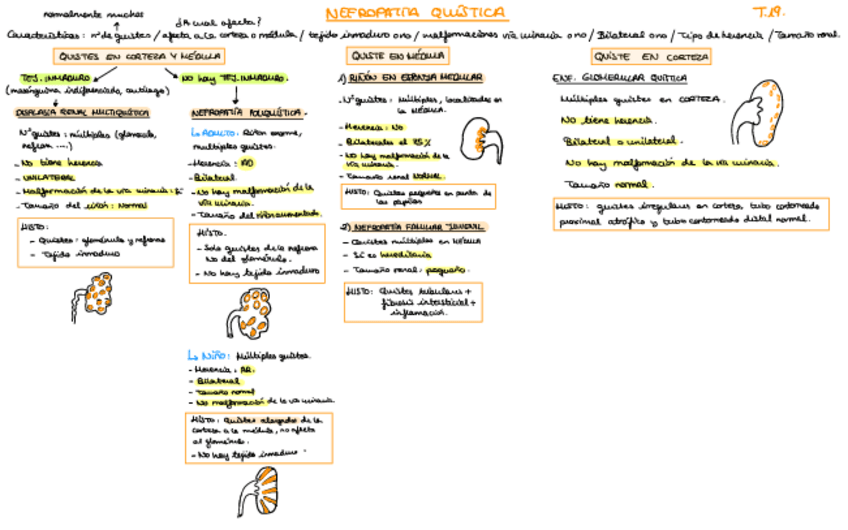 NEFROPATÍA QUÍSTICA
T.19.
normalmente muchos
¿A cual afecta?
Características: nº de quistes / afecta a la corteza o médula / tejido inmaduro o no / malformaciones vía urinaria o no / Bilateral o no / Tipo de herencia / Tamaño renal.
QUISTES EN CORTEZA Y MÉDULA
TEJ. INMADURO
No hay TEJ. INMADURO.
(mesénquima indiferenciado, cartílago)
DISPLASIA RENAL MULTIQUÍSTICA
Nº quistes: múltiples (glomérulo,
nefrona ....)
- No tiene herencia
- UNILATERAL
- Malformación de la vía urinaria: Sí
- Tamaño del riñón: Normal
HISTO:
- Quistes: glomérulo y nefronas
- Tejido inmaduro
NEFROPATÍA POLIQUÍSTICA.
↳ ADULTO: Riñón enorme,
múltiples quistes.
- Herencia: AD
- Bilateral
- No hay malformación de la
vía urinaria.
- Tamaño del riñón aumentado.
HISTO.
- Solo quistes de la nefrona
No del glomérulo.
- No hay tejido inmaduro
↳ NIÑO: Múltiples quistes.
- Herencia: AR.
- Bilateral
- Tamaño normal
- No malformación de la vía urinaria
HISTO: Quistes alargados de la
corteza a la médula, no afecta
al glomérulo.
- No hay tejido inmaduro
QUISTE EN MÉDULA
1) RIÑÓN EN ESPONJA MEDULAR
Nº quistes: Múltiples, localizados en
la MÉDULA.
- Herencia: No
- Bilaterales el 75%
- No hay malformación de la
vía urinaria.
- Tamaño renal NORMAL.
HISTO: Quistes pequeños en punta de
las papilas
2) NEFROPATÍA FAMILIAR JUVENIL
- Quistes múltiples en MÉDULA
- Sí es hereditaria
- Tamaño renal: pequeño.
HISTO: Quistes tubulares +
fibrosis intersticial +
inflamación.
QUISTE EN CORTEZA
ENF. GLOMERULAR QUÍSTICA
Múltiples quistes en CORTEZA.
No tiene herencia.
Bilateral o unilateral.
No hay malformación de la vía urinaria.
Tamaño normal.
HISTO: quistes irregulares en corteza, tubo contorneado
proximal atrófico y tubo contorneado distal normal.